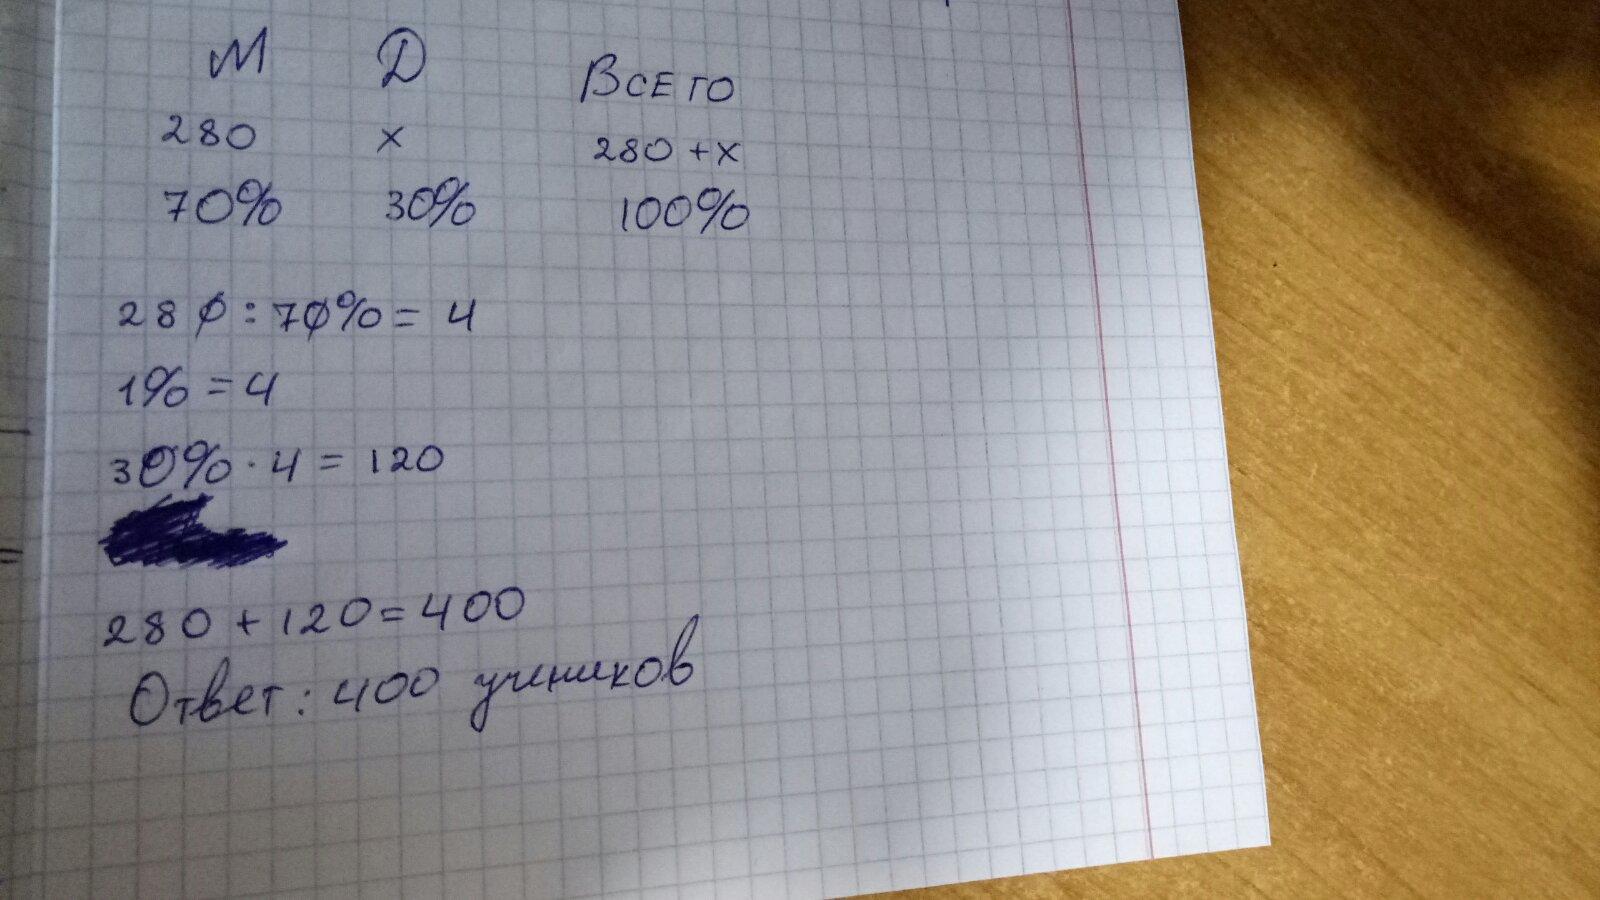 М Д Всего
280 х 280 + х
70% 30% 100%
280 : 70% = 4
1% = 4
30% · 4 = 120
280 + 120 = 400
Ответ: 400 учеников